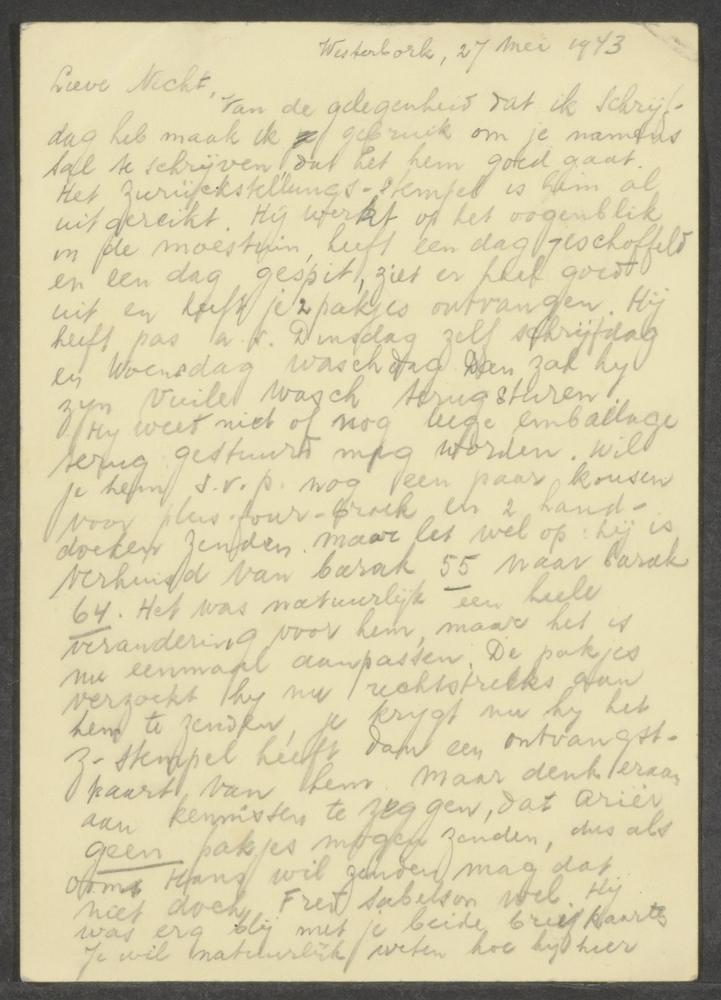 Westerbork, 27 Mei 1943
Lieve Nicht,
Van de gelegenheid dat ik schrijf-
dag heb maak ik gebruik om je namens
Sal te schrijven dat het hem goed gaat.
Het Zurückstellungs-stempel is hem al
uitgereikt. Hij werkt op het oogenblik
in de moestuin, heeft een dag geschoffeld
en een dag gespit, ziet er heel goed
uit en heeft je 2 pakjes ontvangen. Hij
heeft pas a.s. Dinsdag zelf schrijfdag
en Woensdag waschdag. Dan zal hy
zyn vuile wasch terugsturen.
Hy weet niet of nog lege emballage
terug gestuurd mag worden. Wil
je hem s.v.p. nog een paar kousen
voor plus-four-broek en 2 hand-
doeken zenden. Maar let wel op: hij is
verhuisd van barak 55 naar barak
64. Het was natuurlijk een heele
verandering voor hem, maar het is
nu eenmaal aanpassen. De pakjes
verzoekt hy nu rechtstreeks aan
hem te zenden, je krygt nu hy het
Z-stempel heeft dan een ontvangst-
kaart van hem. Maar denk eraan
aan kennissen te zeggen, dat Ariër
geen pakjes mogen zenden, dus als
Hans wil zenden mag dat
niet doch Fred Sabelson wel. Hij
was erg blij met je beide briefkaarts
Je wil natuurlijk weten hoe hy hier